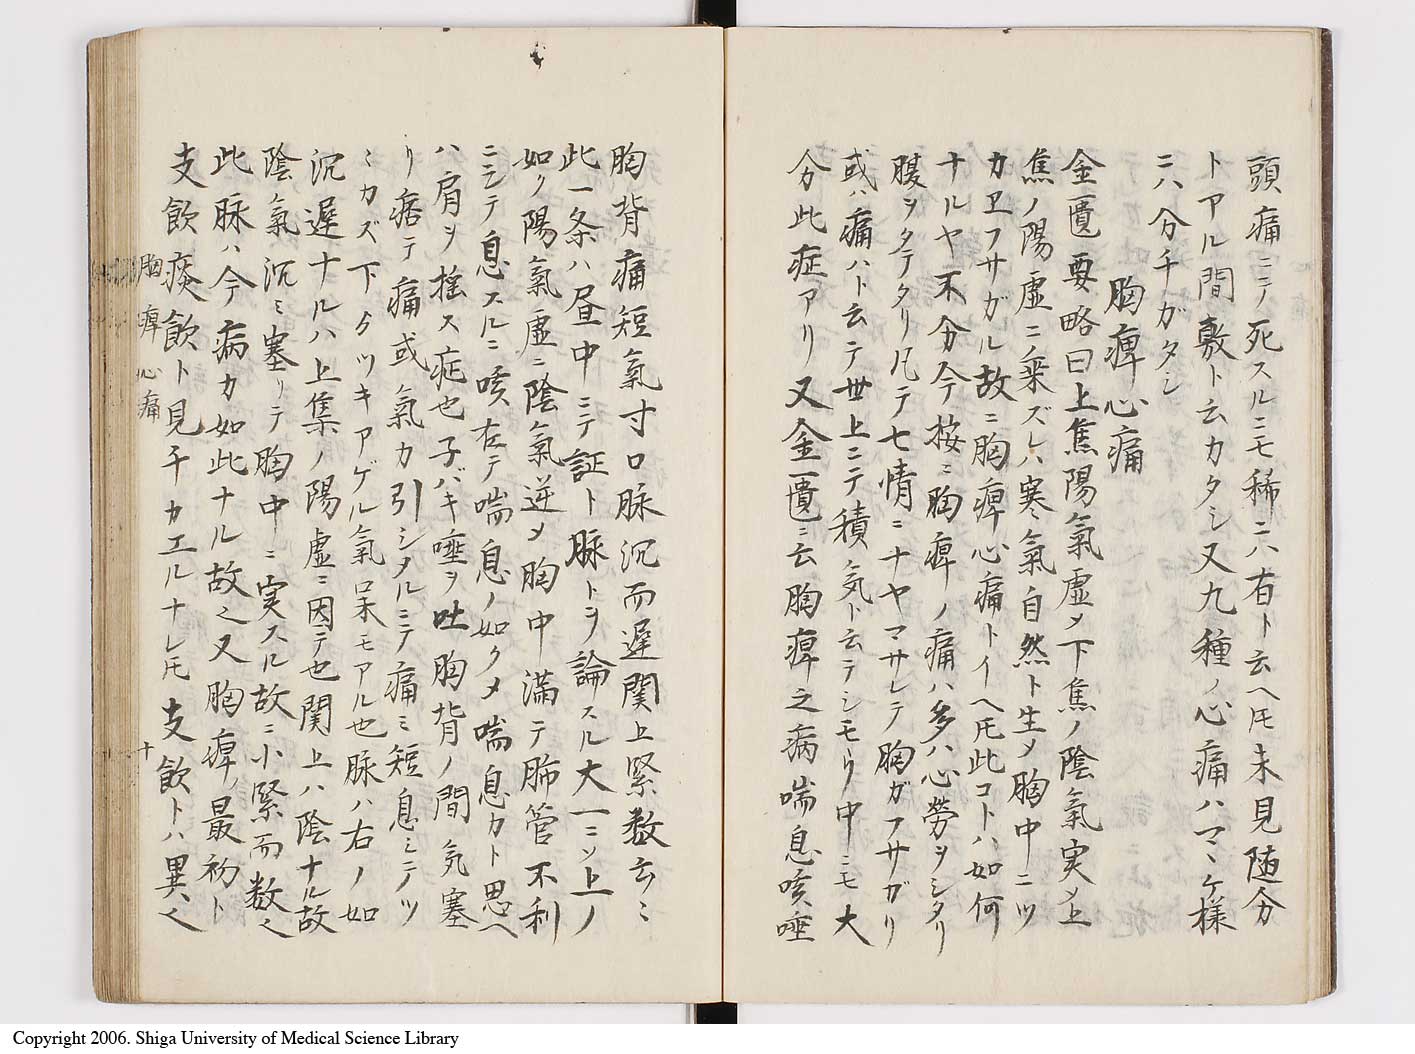 頭痛ニテ死スルニモ稀ニハ有ト云ヘ𪜈未見随分
トアル間敷ト云カタシ又九種ノ心痛ハマヽケ様
ニハ分チガタシ
胸痺心痛
金匱要略曰上焦陽氣虚メ下焦ノ陰氣実メ上
焦ノ陽虚ニ乗ズレハ寒氣自然ト生メ胸中ニツ
カヱフサガル故ニ胸痺心痛トイヘ𪜈此コトハ如何
ナルヤ不分今按ニ胸痺ノ痛ハ多ハ心勞ヲシタリ
腹ヲタテタリ凡テ七情ニナヤマサレテ胸ガフサガリ
或ハ痛ハト云テ世上ニテ積気ト云テシモウ中ニモ大
分此症アリ又金匱ニ云胸痺之病喘息咳唾
胸背痛短氣寸口脉沉而遅関上緊数云々
此一条ハ昼中ニテ証ト脉トヲ論スル大一ニソ上ノ
如ク陽氣虚ニ陰氣逆メ胸中満テ肺管不利
ニシテ息スルニ咳在テ喘息ノ如クメ喘息カト思ヘ
ハ肩ヲ搖ス症也子バキ唾ヲ吐胸背ノ間気塞
リ痞テ痛或氣カ引シタルニテ痛ミ短息ミニテツ
ミカズ下ゟツキアゲル氣呆モアル也脉ハ右ノ如
沉遅ナルハ上集ノ陽虚ニ因テ也関上ハ陰ナル故
陰氣沉ミ塞リテ胸中ニ実スル故ニ小緊而数也
此脉ハ今病カ如此ナル故也又胸痺ノ最初ト
支飲痰飲ト見チカエルナレ𪜈支飲トハ異也
胸痺心痛
十
Copyright 2006. Shiga University of Medical Science Library